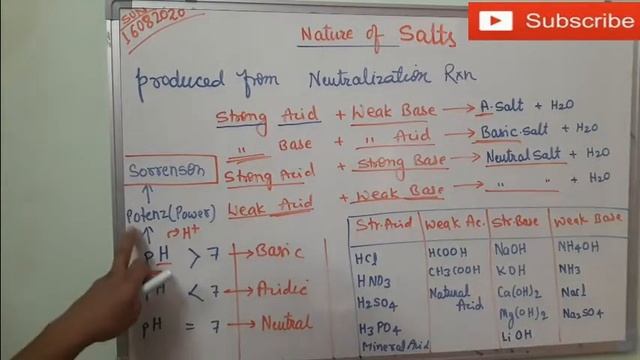 SUN
16082020
Subscribe
Nature of Salts
produced from Neutralization Rxn
Strong Acid + Weak Base → A.Salt + H2O
" Base + " Acid → Basic.salt + H2O
Strong Acid + Strong Base → Neutral Salt + H2O
Weak Acid + Weak Base → " " + H2O
Sorrenson
↑
Potenz (Power)
↑ → H+
pH > 7 → Basic
pH < 7 → Acidic
pH = 7 → Neutral
Str.Acid Weak Ac. Str.Base Weak Base
HCl HCOOH NaOH NH4OH
HNO3 CH3COOH KOH NH3
H2SO4 Natural Acid Ca(OH)2 NaCl
H3PO4 Mg(OH)2 Na2SO4
Mineral Acid LiOH